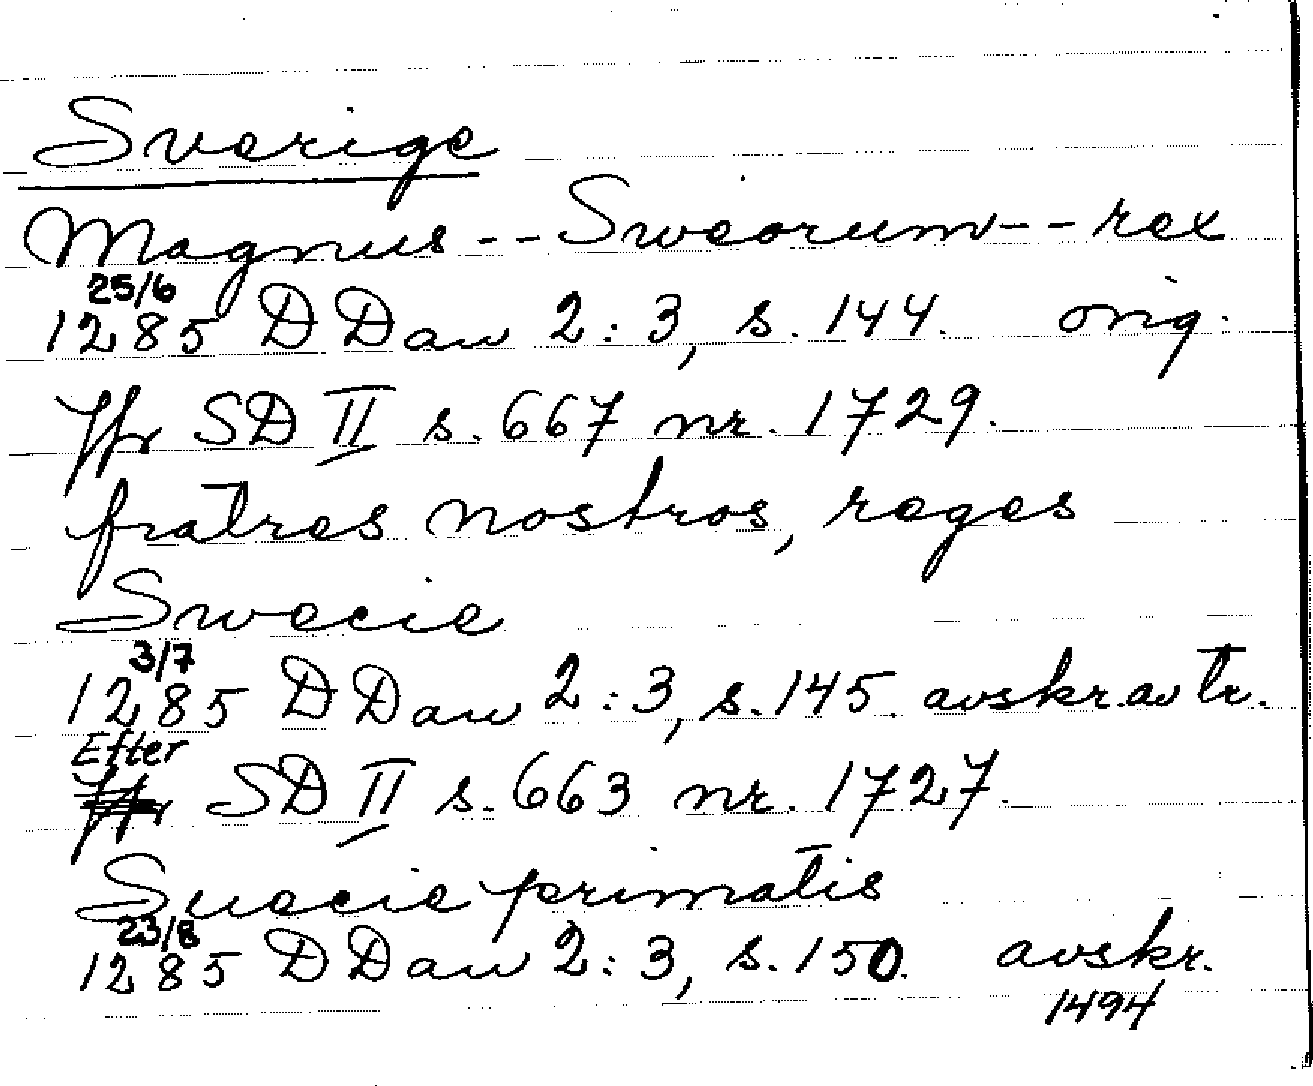 Sverige
Magnus -- Sweorum -- rex
25/6
1285 DDan 2:3, s. 144. orig.
Jfr SD II s. 667 nr. 1729.
fratres nostros, reges
Swecie
3/7
1285 DDan 2:3, s. 145. avskr. av tr.
Efter
Jfr SD II s. 663 nr. 1727.
Suecie primatis
23/8
1285 DDan 2:3, s. 150. avskr.
1494